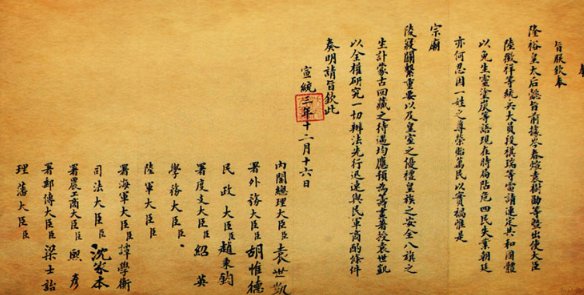 旨朕欽奉
隆裕皇太后懿旨前據岑春煊袁樹勛等暨出使大臣
陸徵祥等統兵大員段祺瑞等電請速定共和國體
以免生靈塗炭等語現在時局阽危四民失業朝廷
亦何忍因一姓之尊榮貽萬民以實禍惟是
宗廟
陵寢關繫重要以及皇室之優禮皇族之安全八旗之
生計蒙古回藏之待遇均應預為籌畫著授袁世凱
以全權研究一切辦法先行迅速與民軍商酌條件
奏明請旨欽此
宣統三年十二月十六日
內閣總理大臣臣袁世凱
署外務大臣臣胡惟德
民政大臣臣趙秉鈞
署度支大臣臣紹英
學務大臣臣
陸軍大臣臣
署海軍大臣臣譚學衡
司法大臣臣沈家本
署農工商大臣臣熙彥
署郵傳大臣臣梁士詒
理藩大臣臣